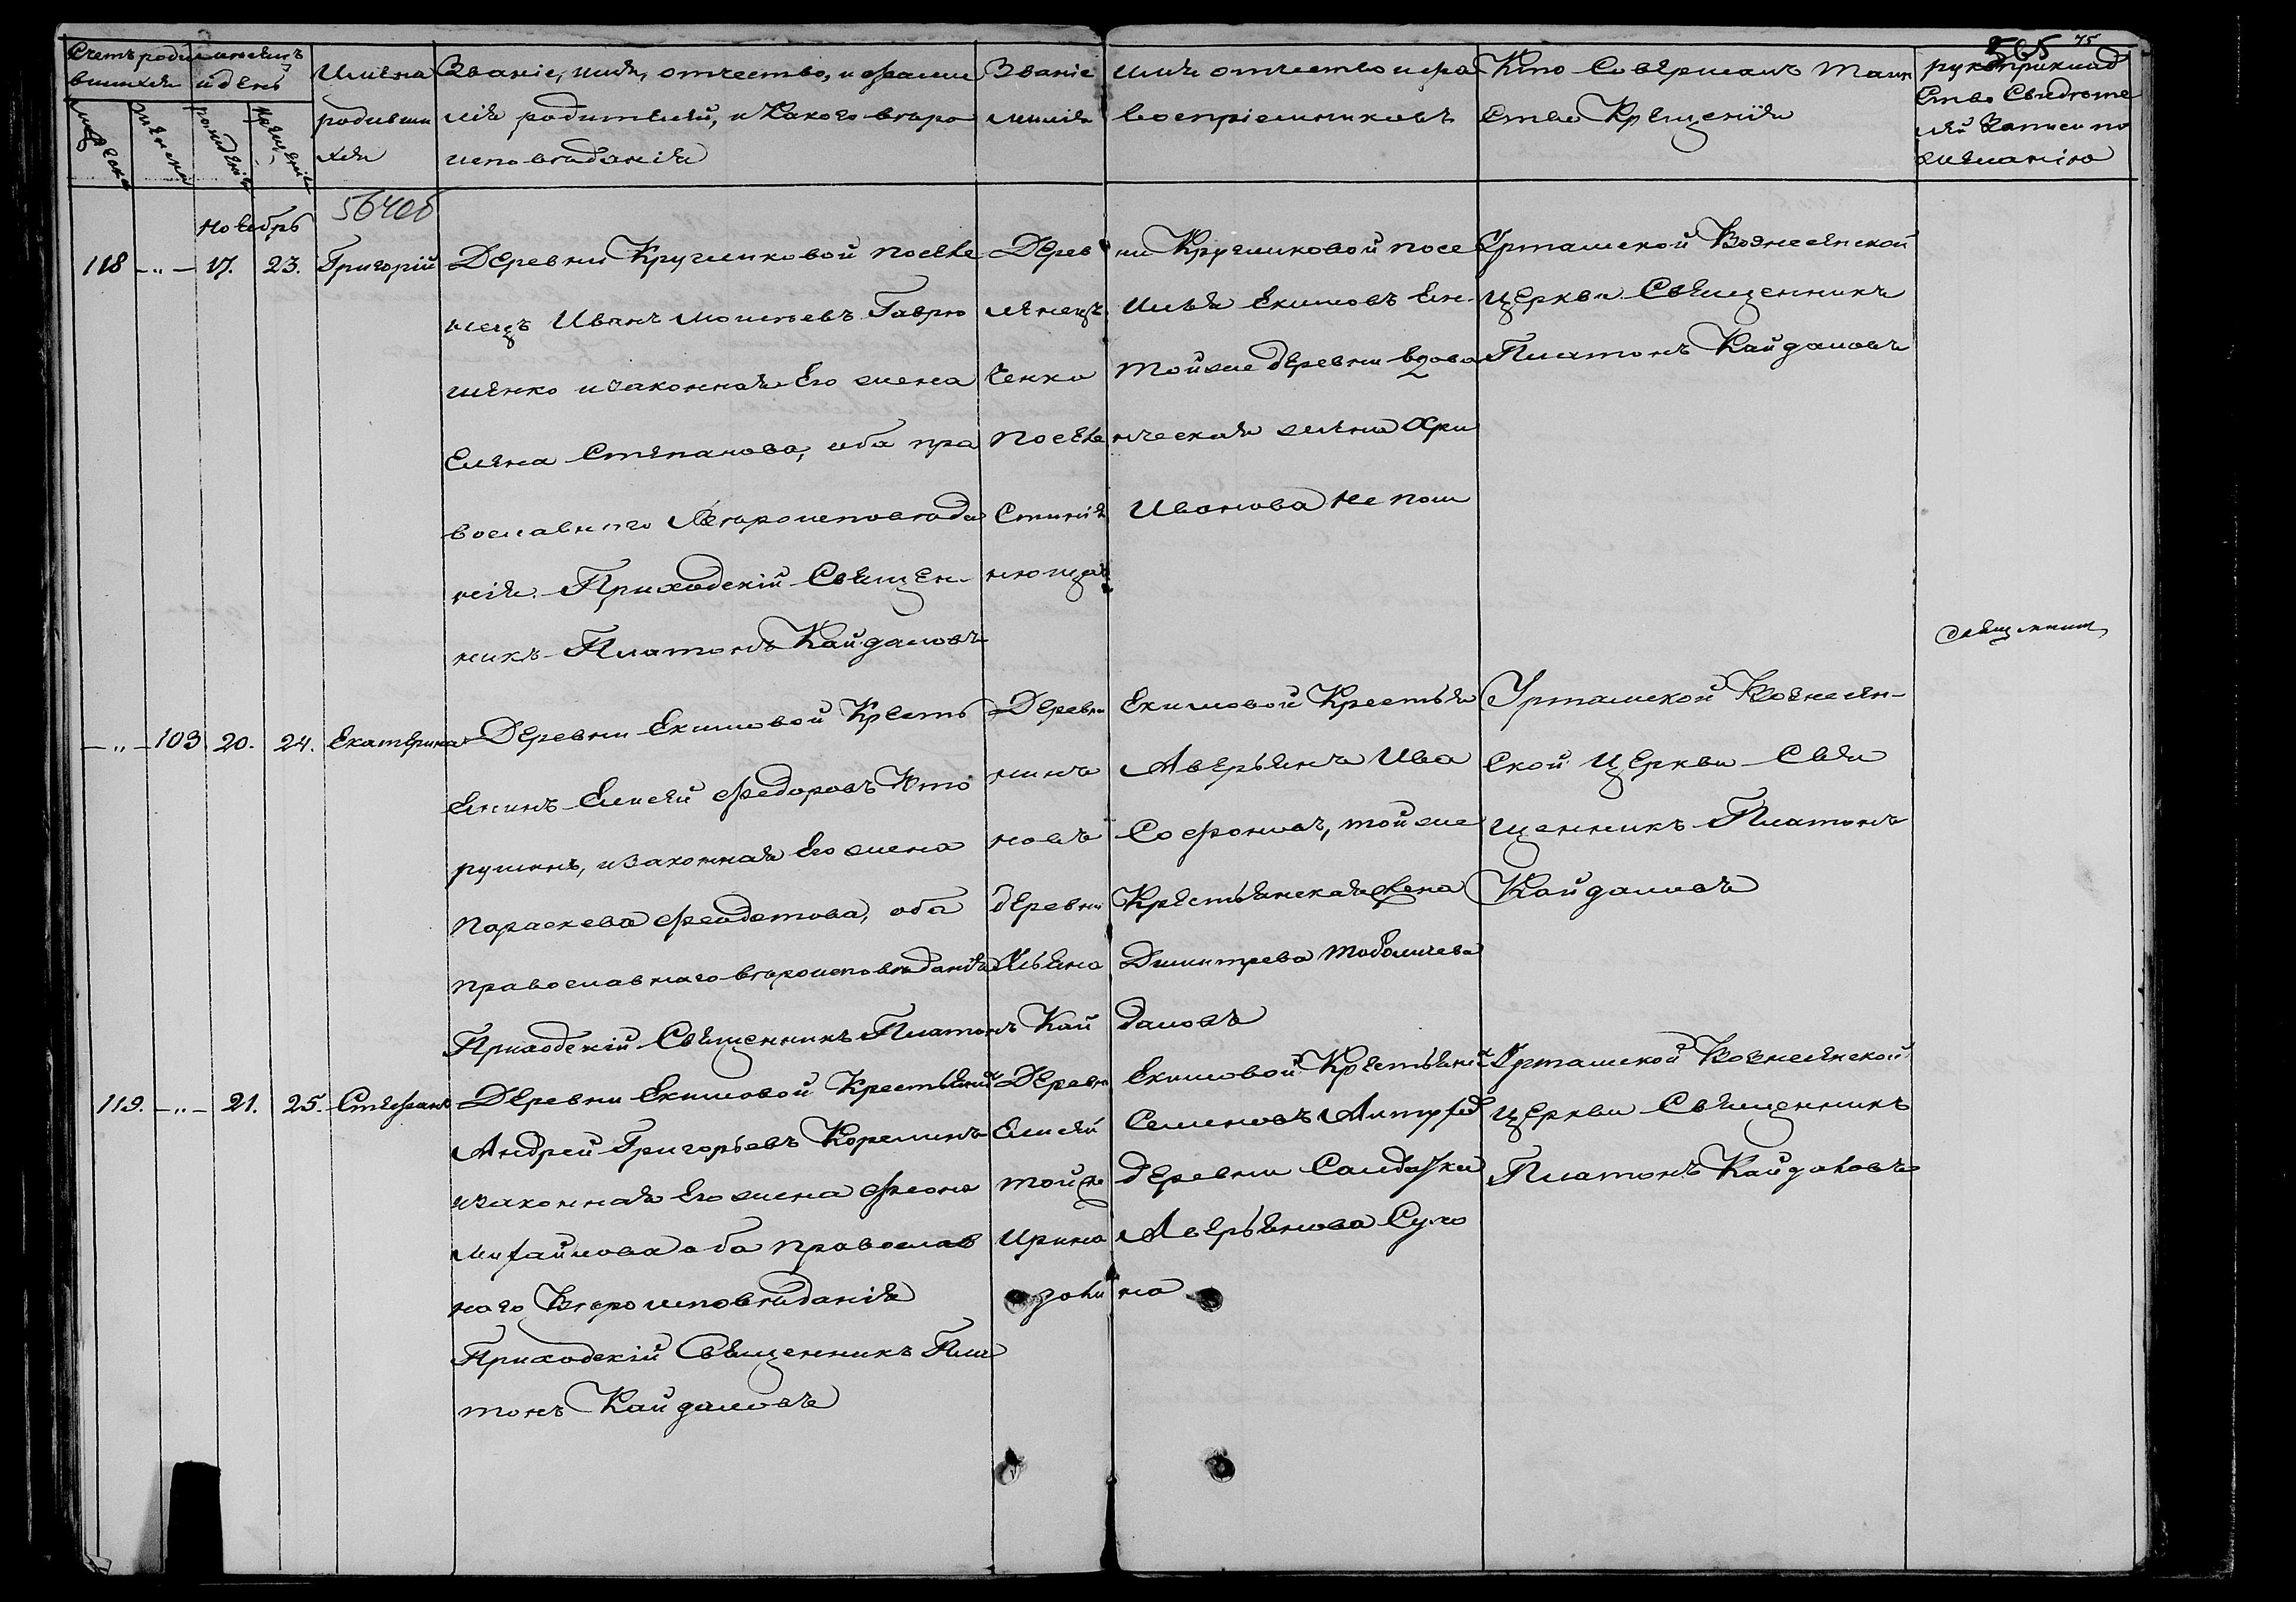 75
Счетъ родившихся
мѣсяцъ и день
мужеска
женска
рожденія
крещенія
Имѣна
родивши
хся
Званіе, имя, отчество, и фами
лія родителей, и какого вѣро
исповѣданія
Званіе имя отчество и фа
милія воспріемниковъ
Кто совершалъ таин
ство крещенія
рукоприклад
ство свидѣте
лей записи по
желанію
Ноябрь
118 — „ — 17. 23. Григорій
Деревни Кругликовой поселе
нецъ Иванъ Моисѣевъ Гаврю
шенко и законная его жена
Елена Степанова, оба пра
вославнаго вѣроисповѣда
нія. Приходскій Священ-
никъ Платонъ Кайдаловъ
Деревни Кругликовой посе
ленецъ Илья Екимовъ Ем-
ченко той же деревни вдова
поселенческая жена Хри
стинія Иванова не пом
нющая
Урташской Вознесенской
церкви Священникъ
Платонъ Кайдаловъ
Священникъ
— „ — 103 20. 24. Екатерина
Деревни Екимовой Кресть
янинъ Елисѣй Федоровъ
рушинъ, и законная его жена
Параскева Феодотова, оба
православнаго вѣроисповѣданія
Приходскій Священникъ Платонъ Кайдаловъ
Деревни Екимовой Крестья
нинъ Аверьянъ Ива
новъ Софоновъ, той же
деревни Крестьянская жена
Ульяна Димитрева Тоболчева
Урташской Вознесен-
ской церкви Свя
щенникъ Платонъ
Кайдаловъ
119. — „ — 21. 25. Стефанъ
Деревни Екимовой Крестьянинъ
Андрей Григорьевъ Корелинъ
и законная его жена Феона
Михайлова оба православ
наго вѣроисповѣданія
Приходскій Священникъ Пла
тонъ Кайдаловъ
Деревни Екимовой Крестьянинъ
Елисей Семеновъ
той же деревни Солдатка
Ирина Аверьянова Сухо
дolина
Урташской Вознесенской
церкви Священникъ
Платонъ Кайдаловъ